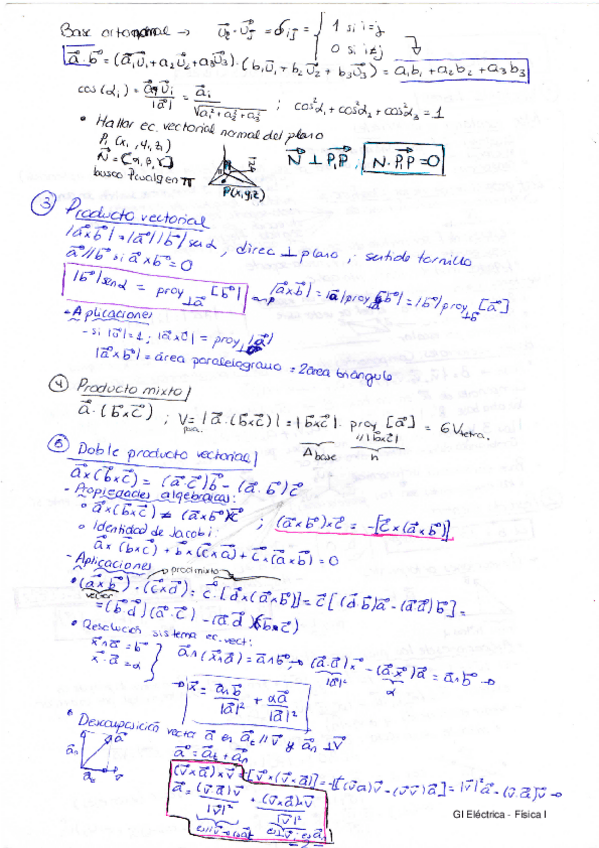 Base ortonormal → u⃗i · u⃗j = δij = { 1 si i=j
0 si i≠j
a⃗ · b⃗ = (a₁u⃗₁ + a₂u⃗₂ + a₃u⃗₃) · (b₁u⃗₁ + b₂u⃗₂ + b₃u⃗₃) = a₁b₁ + a₂b₂ + a₃b₃
cos(αi) = a⃗·u⃗i / |a⃗| = ai / √(a₁² + a₂² + a₃²) ; cos²α₁ + cos²α₂ + cos²α₃ = 1
• Hallar ec. vectorial normal del plano
P₁ (x₁, y₁, z₁)
N⃗ = (α, β, γ)
busco P cualq en π
P(x,y,z)
N⃗ ⊥ P₁P , N⃗ · P₁P = 0
③ Producto vectorial
|a⃗×b⃗| = |a⃗||b⃗| sen α , direc ⊥ plano ; sentido tornillo
a⃗ // b⃗ si a⃗×b⃗ = 0
|b⃗| sen α = proy ⊥a⃗ [b⃗] → |a⃗×b⃗| = |a⃗| proy ⊥a⃗ [b⃗] = |b⃗| proy ⊥b⃗ [a⃗]
- Aplicaciones
|a⃗×b⃗| = área paralelogramo = 2 área triángulo
④ Producto mixto
a⃗ · (b⃗×c⃗) ; V = |a⃗ · (b⃗×c⃗)| = |b⃗×c⃗| · proy [a⃗] = 6 Vtetra.
//|b⃗×c⃗|
Abase h
Doble producto vectorial
a⃗×(b⃗×c⃗) = (a⃗·c⃗)b⃗ - (a⃗·b⃗)c⃗
- Propiedades algebráicas:
• a⃗×(b⃗×c⃗) ≠ (a⃗×b⃗)×c⃗ ; (a⃗×b⃗)×c⃗ = -[c⃗×(a⃗×b⃗)]
• Identidad de Jacobi:
a⃗×(b×c) + b×(c⃗×a) + c⃗×(a×b) = 0
- Aplicaciones → prod mixto
• (a⃗×b⃗) · (c⃗×d⃗) = c⃗ · [d⃗×(a⃗×b⃗)] = c⃗ [(d⃗·b)a⃗ - (a⃗·d⃗)b⃗] =
vector
= (b⃗·d⃗)(a⃗·c⃗) - (a⃗·d⃗)(b⃗·c⃗)
• Resolución sistema ec. vect:
x⃗∧a⃗ = b⃗
x⃗ · a⃗ = α
a⃗∧(x⃗∧a⃗) = a⃗∧b⃗ → (a⃗·a⃗)x⃗ - (a⃗·x⃗)a⃗ = a∧b⃗ →
|a⃗|² α
→ x⃗ = a⃗∧b⃗ / |a⃗|² + αa⃗ / |a⃗|²
• Descomposición vector a⃗ en a⃗t // v⃗ y a⃗n ⊥ v⃗
a⃗ = a⃗t + a⃗n
(v⃗×a⃗)×v⃗ = -[v⃗×(v⃗×a⃗)] = -[(v⃗·a)v⃗ - (v⃗·v⃗)a⃗] = |v⃗|²a⃗ - (v⃗·a)v⃗ →
a⃗ = (v⃗·a⃗)v⃗ / |v⃗|² + (v⃗×a⃗)×v⃗ / |v⃗|²
GI Eléctrica - Física I